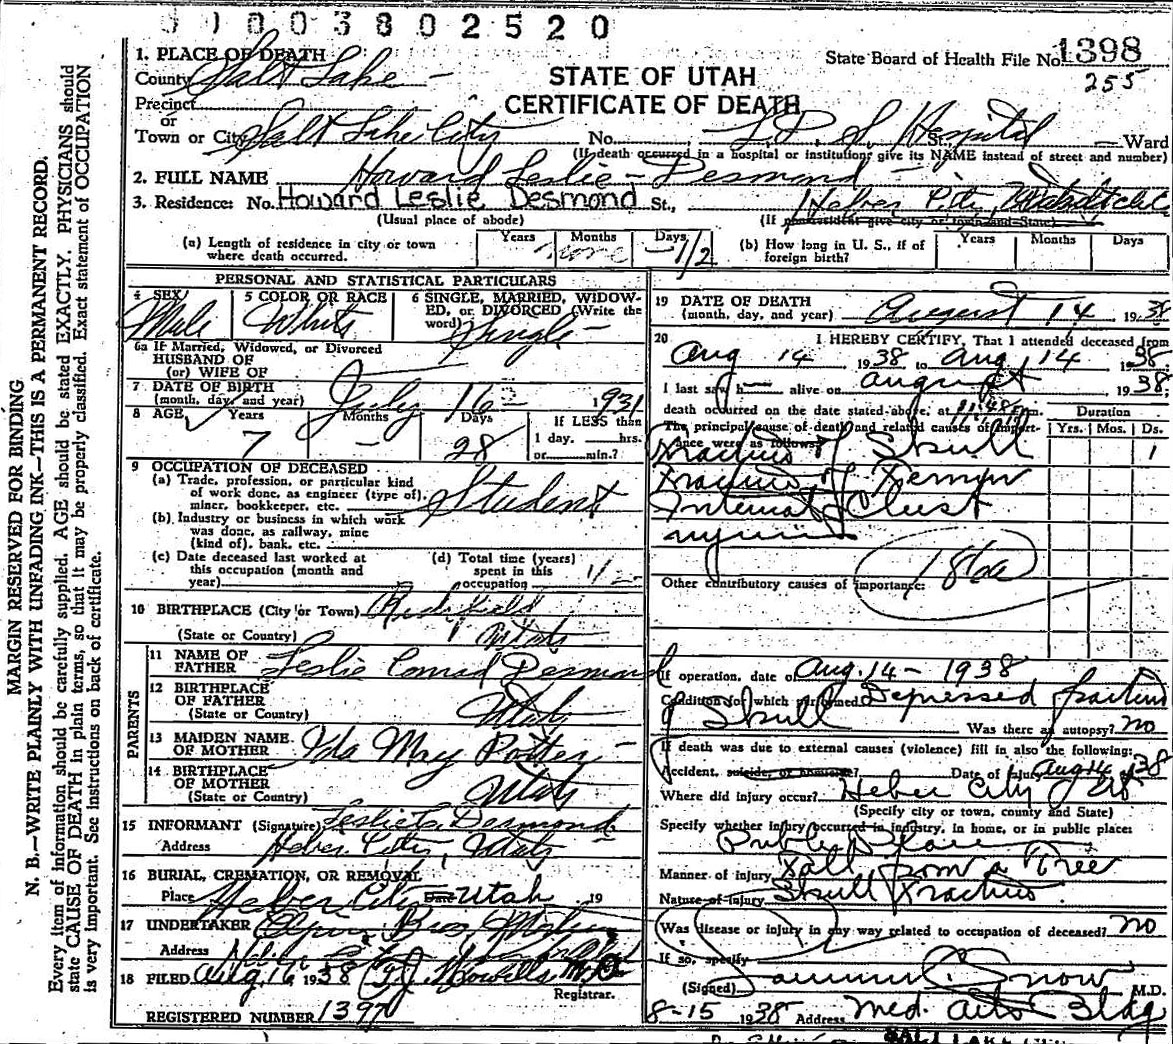 003802520
MARGIN RESERVED FOR BINDING
N. B.—WRITE PLAINLY WITH UNFADING INK—THIS IS A PERMANENT RECORD.
Every item of information should be carefully supplied. AGE should be stated EXACTLY. PHYSICIANS should
state CAUSE OF DEATH in plain terms, so that it may be properly classified. Exact statement of OCCUPATION
is very important. See instructions on back of certificate.
State Board of Health File No. 1398
255
STATE OF UTAH
CERTIFICATE OF DEATH
1. PLACE OF DEATH
County Salt Lake
Precinct
or
Town or City Salt Lake City No. L. D. S. Hospital St., Ward
(If death occurred in a hospital or institution, give its NAME instead of street and number)
2. FULL NAME Howard Leslie Desmond
3. Residence: No. Howard Leslie Desmond St., Heber City,
(Usual place of abode) (If nonresident give city or town and State)
(a) Length of residence in city or town
where death occurred. Years Months Days 1/2
(b) How long in U. S., if of
foreign birth? Years Months Days
PERSONAL AND STATISTICAL PARTICULARS
4 SEX Male
5 COLOR OR RACE White
6 SINGLE, MARRIED, WIDOW-
ED, or DIVORCED (Write the
word) Single
6a If Married, Widowed, or Divorced
HUSBAND OF
(or) WIFE OF
7 DATE OF BIRTH
(month, day, and year) July 16 1931
8 AGE Years 7 Months - Days 28 If LESS than
1 day. hrs.
or min.?
9 OCCUPATION OF DECEASED
(a) Trade, profession, or particular kind
of work done, as engineer (type of),
miner, bookkeeper, etc. Student
(b) Industry or business in which work
was done, as railway, mine
(kind of), bank, etc.
(c) Date deceased last worked at
this occupation (month and
year)
(d) Total time (years)
spent in this
occupation 1/
10 BIRTHPLACE (City or Town) Richfield
(State or Country) Utah
PARENTS
11 NAME OF
FATHER Leslie Conrad Desmond
12 BIRTHPLACE
OF FATHER
(State or Country) Utah
13 MAIDEN NAME
OF MOTHER Ida May Potter
14 BIRTHPLACE
OF MOTHER
(State or Country) Utah
15 INFORMANT (Signature) Leslie C. Desmond
Address Heber City, Utah
16 BURIAL, CREMATION, OR REMOVAL
Place Heber City Date Utah 19
17 UNDERTAKER
Address
18 FILED Aug. 16, 1938 M. D.
Registrar.
REGISTERED NUMBER 1397
19 DATE OF DEATH
(month, day, and year) August 14 1938
20 I HEREBY CERTIFY, That I attended deceased from
Aug 14 1938 to Aug 14 1938
I last saw h alive on August 1938,
death occurred on the date stated above, at m.
The principal cause of death and related causes of import-
ance were as follows: Duration
Yrs. Mos. Ds.
Fracture of Skull 1
Fracture of Femur
Internal Chest
injuries
186a
Other contributory causes of importance:
If operation, date of Aug. 14 - 1938
Condition for which performed Depressed fracture
of Skull Was there an autopsy? no
If death was due to external causes (violence) fill in also the following:
Accident, suicide, or homicide? Date of injury Aug 14 1938
Where did injury occur? Heber City
(Specify city or town, county and State)
Specify whether injury occurred in industry, in home, or in public place:
Public Place
Manner of injury Fall from a Tree
Nature of injury Skull Fracture
Was disease or injury in any way related to occupation of deceased? no
If so, specify
(Signed) Snow M.D.
8-15 1938 Address Med. Arts Bldg
SALT LAKE